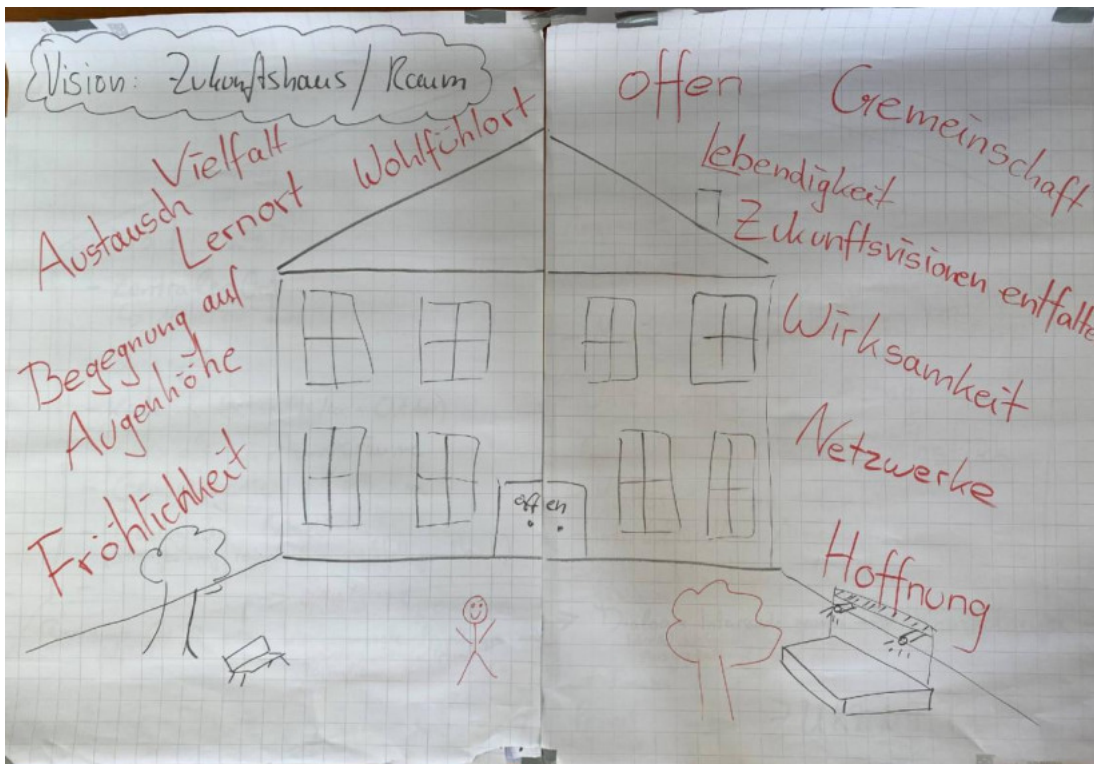 Vision: Zukunftshaus / Raum
Vielfalt
Wohlfühlort
Austausch
Lernort
Begegnung auf
Augenhöhe
Fröhlichkeit
offen
Gemeinschaft
Lebendigkeit
Zukunftsvisionen entfalte
Wirksamkeit
Netzwerke
Hoffnung
offen